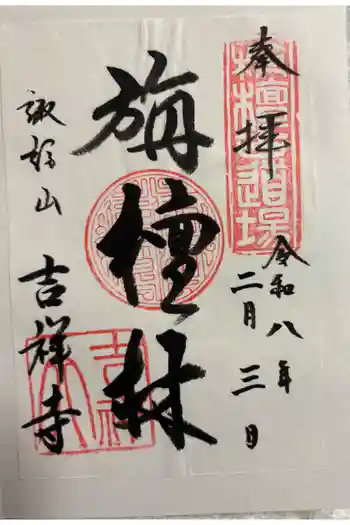 奉拝
令和八年
二月三日
旃檀林
諏訪山
吉祥寺
旃檀道場